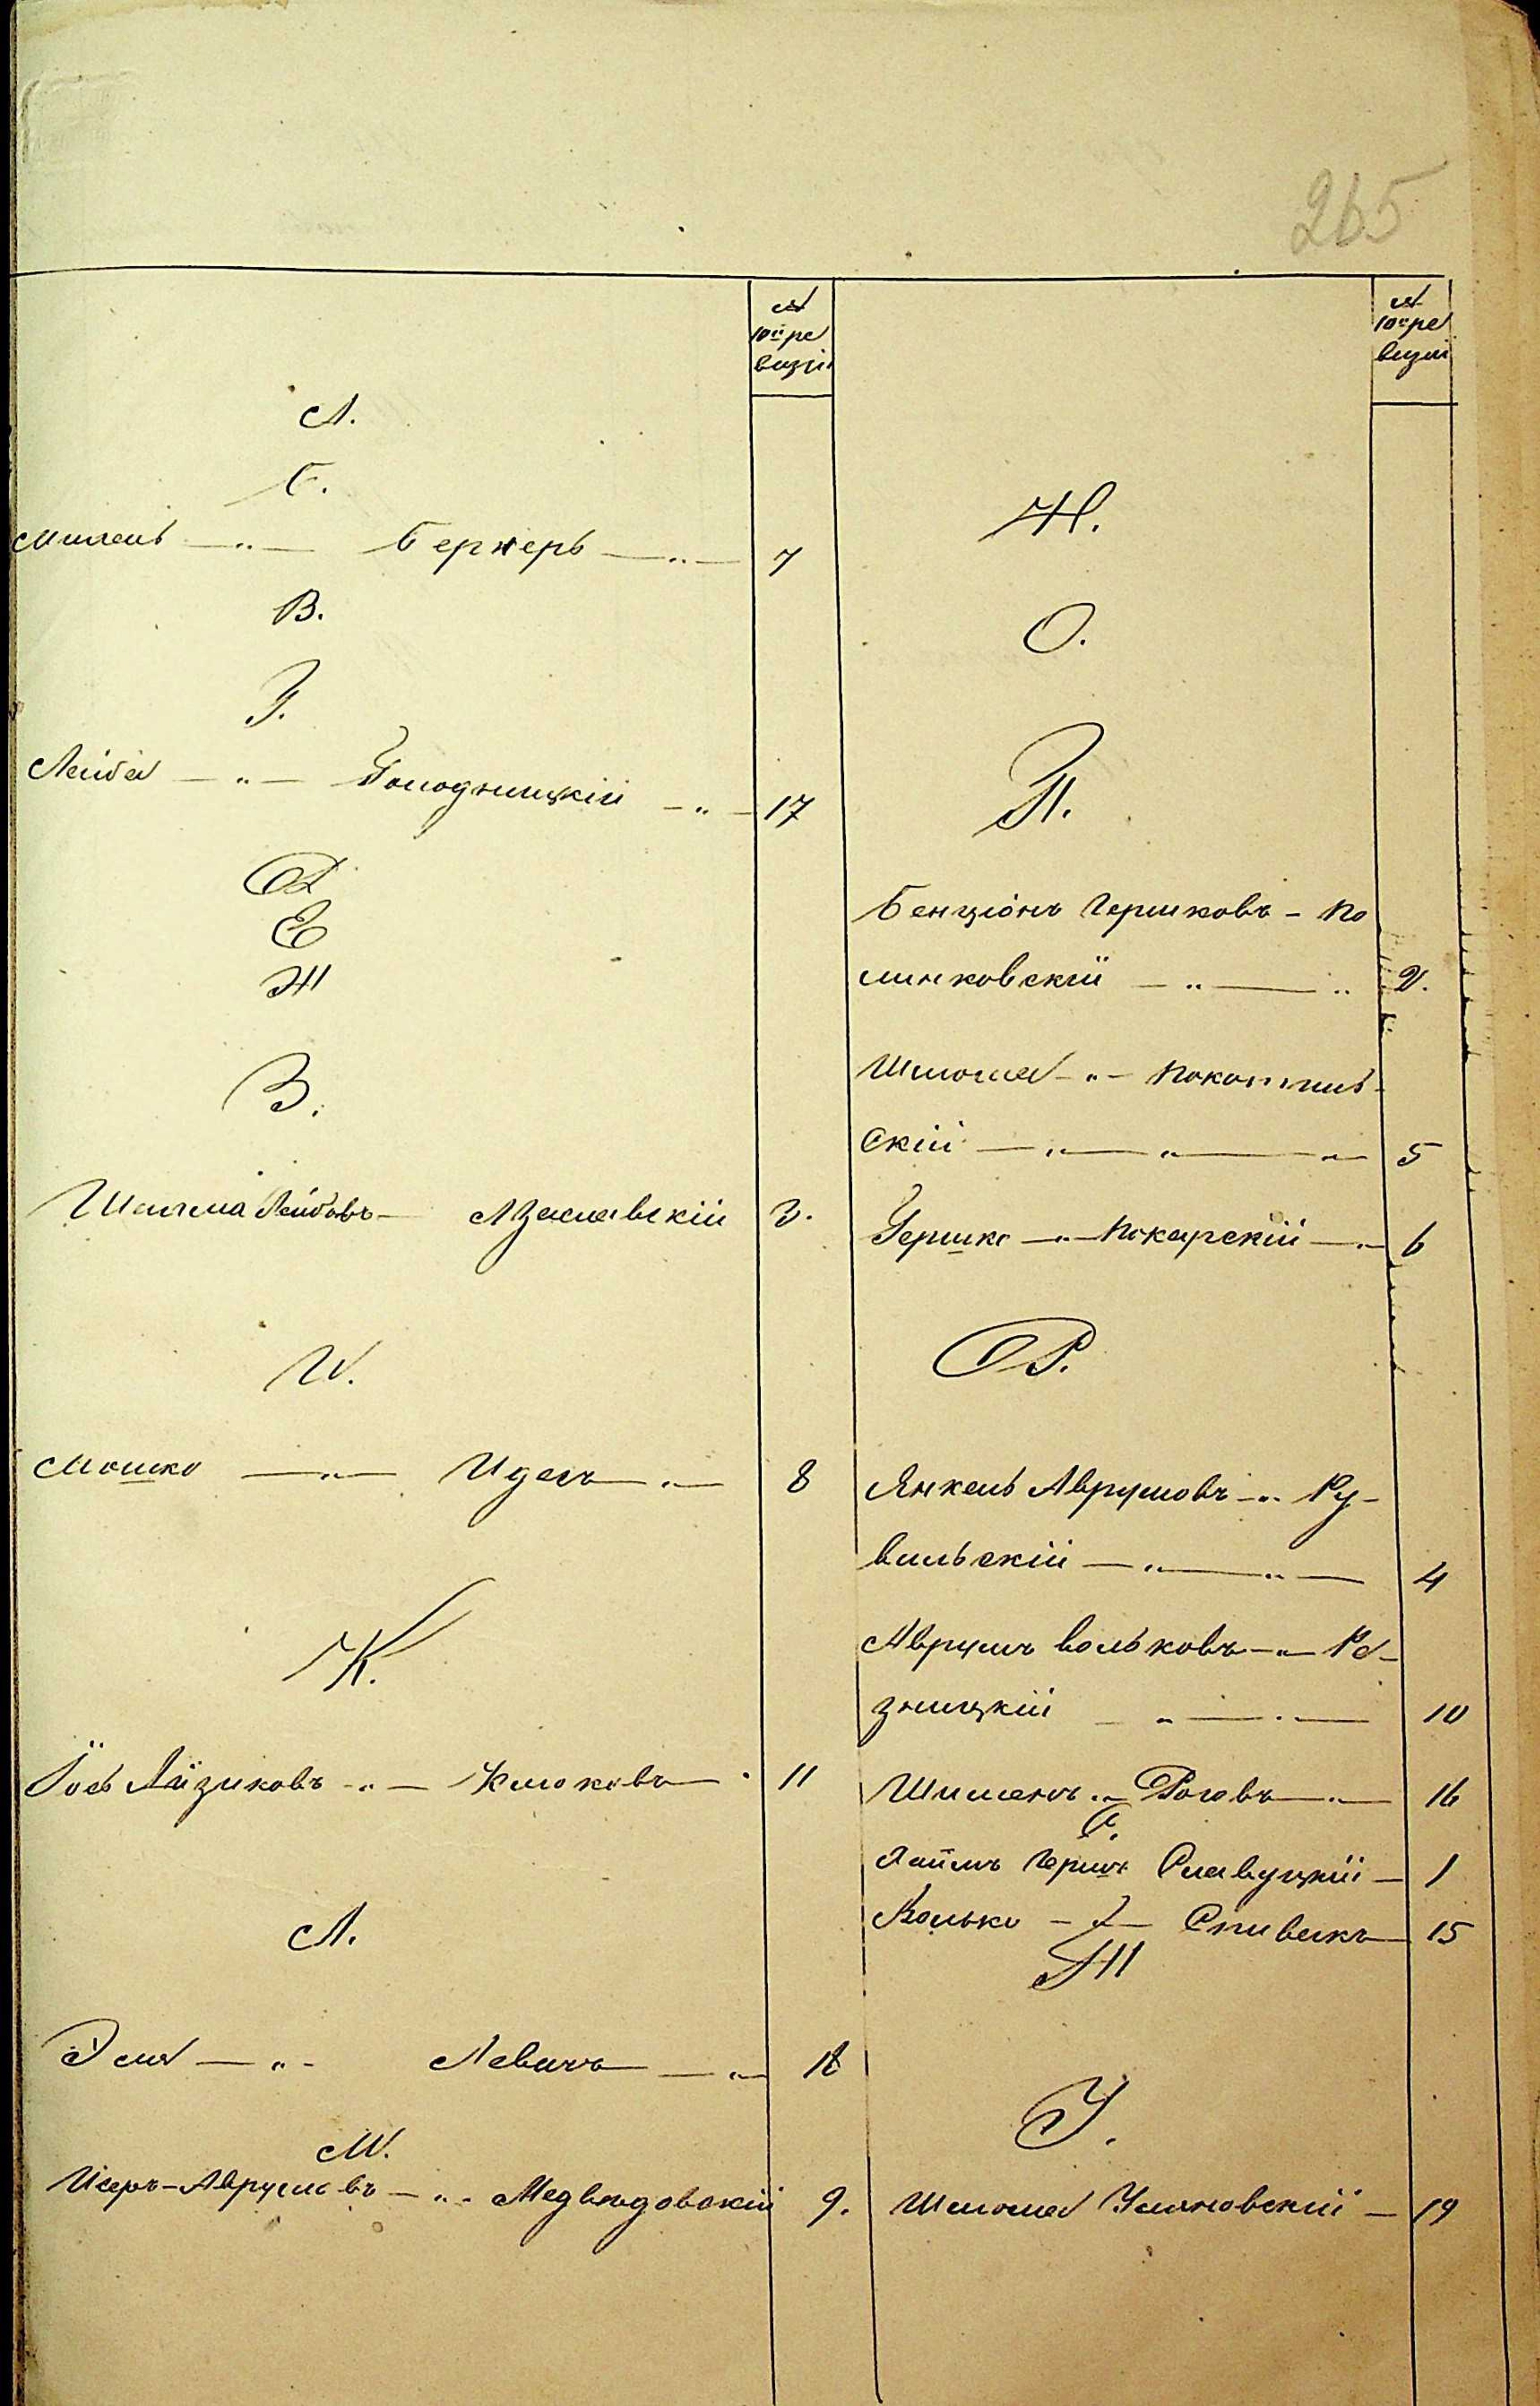 265
№ 10й ре
визіи
А.
Б.
Бернеръ 7
В.
Г.
Лейба — „ — Голодницкій — „ — 17
Д
Е
Ж
З.
Шлёма Лейбовъ — Заславскій 3.
И.
Мошко — „ — Идесъ — „ — 8
К.
Іось Айзиковъ — „ — Клюковъ — . 11
Л.
Эля — „ — Левитъ — „ — 18
М.
Исеръ-Аврумовъ — „ — Медвѣдовскій 9.
№
10й ре
визіи
Н.
О.
П.
Бенціонъ Гершковъ — По
линковскій — „ — „ 2.
Шлома — „ — Покотиль-
скій — „ — „ — „ — 5
Гершко — „ — Покарскій — „ — 6
Р.
Янкель Аврумовъ — „ Ру-
вильскій — „ — „ — 4
Аврумъ Вольковъ — „ — Ре-
зницкій — „ — . — 10
Шимонъ „ — Роговъ — „ — 16
С.
Хаимъ Герш Славуцкій — 1
Волько — „ — Спивакъ — 15
Т
У.
Шлома Умановскій — 19